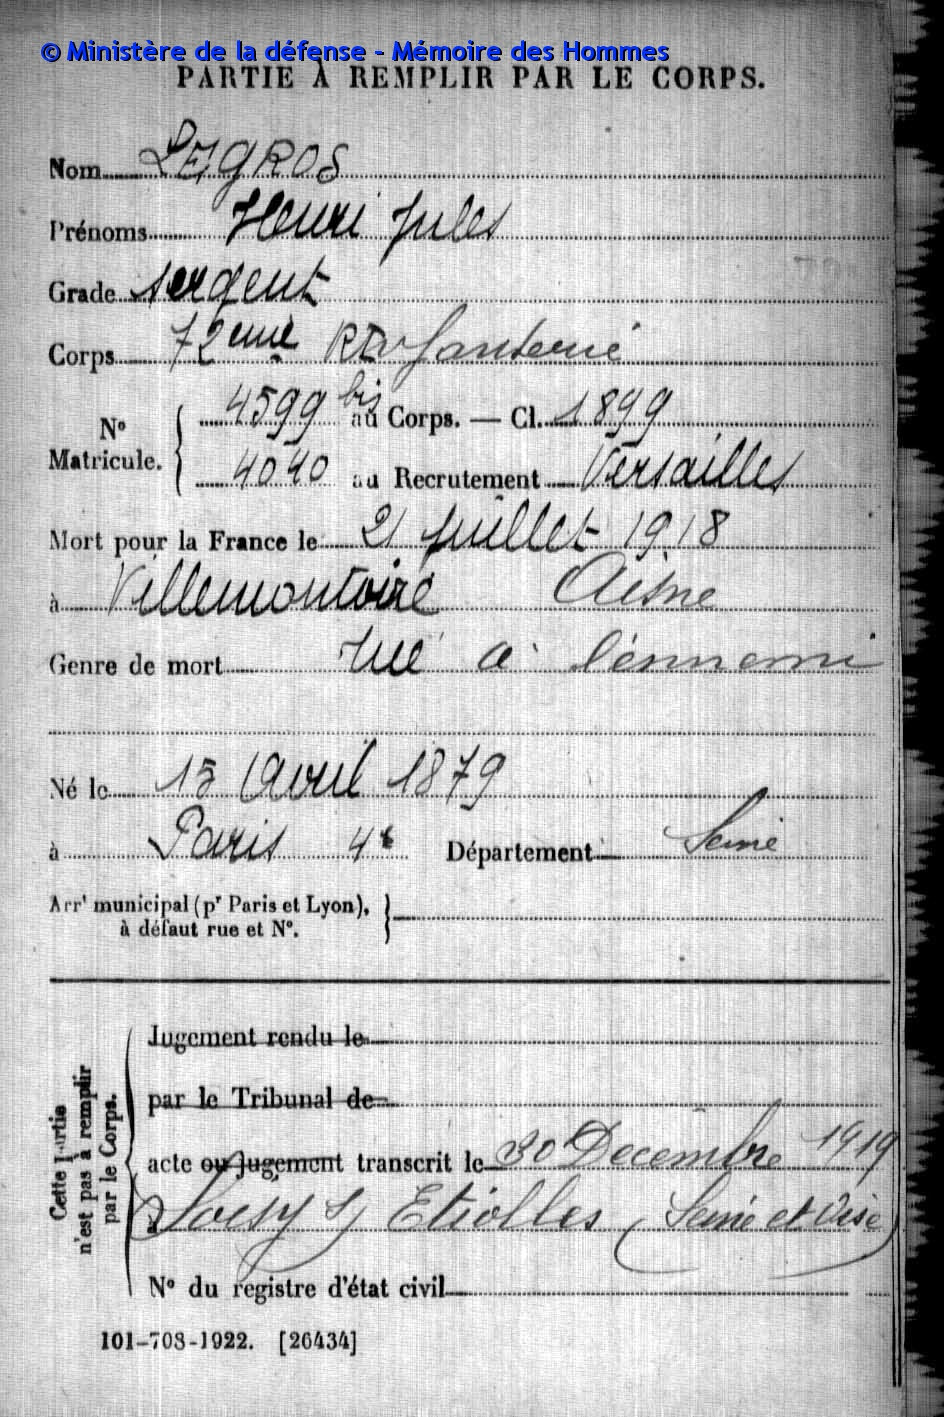 © Ministère de la défense - Mémoire des Hommes
PARTIE À REMPLIR PAR LE CORPS.
Nom LEGROS
Prénoms Henri Jules
Grade sergent
Corps 72eme RI Infanterie
N° Matricule. 4599 bis au Corps. — Cl. 1899
4040 au Recrutement Versailles
Mort pour la France le 21 Juillet 1918
à Villemontoire Aisne
Genre de mort tué à l'ennemi
Né le 15 Avril 1879
à Paris 4e Département Seine
Arrt municipal (pr Paris et Lyon),
à défaut rue et N°.
Cette partie
n'est pas à remplir
par le Corps.
Jugement rendu le
par le Tribunal de
acte ou jugement transcrit le 30 Decembre 1919
à Soisy s/ Etiolles (Seine et Oise)
N° du registre d'état civil
101-708-1922. [26434]